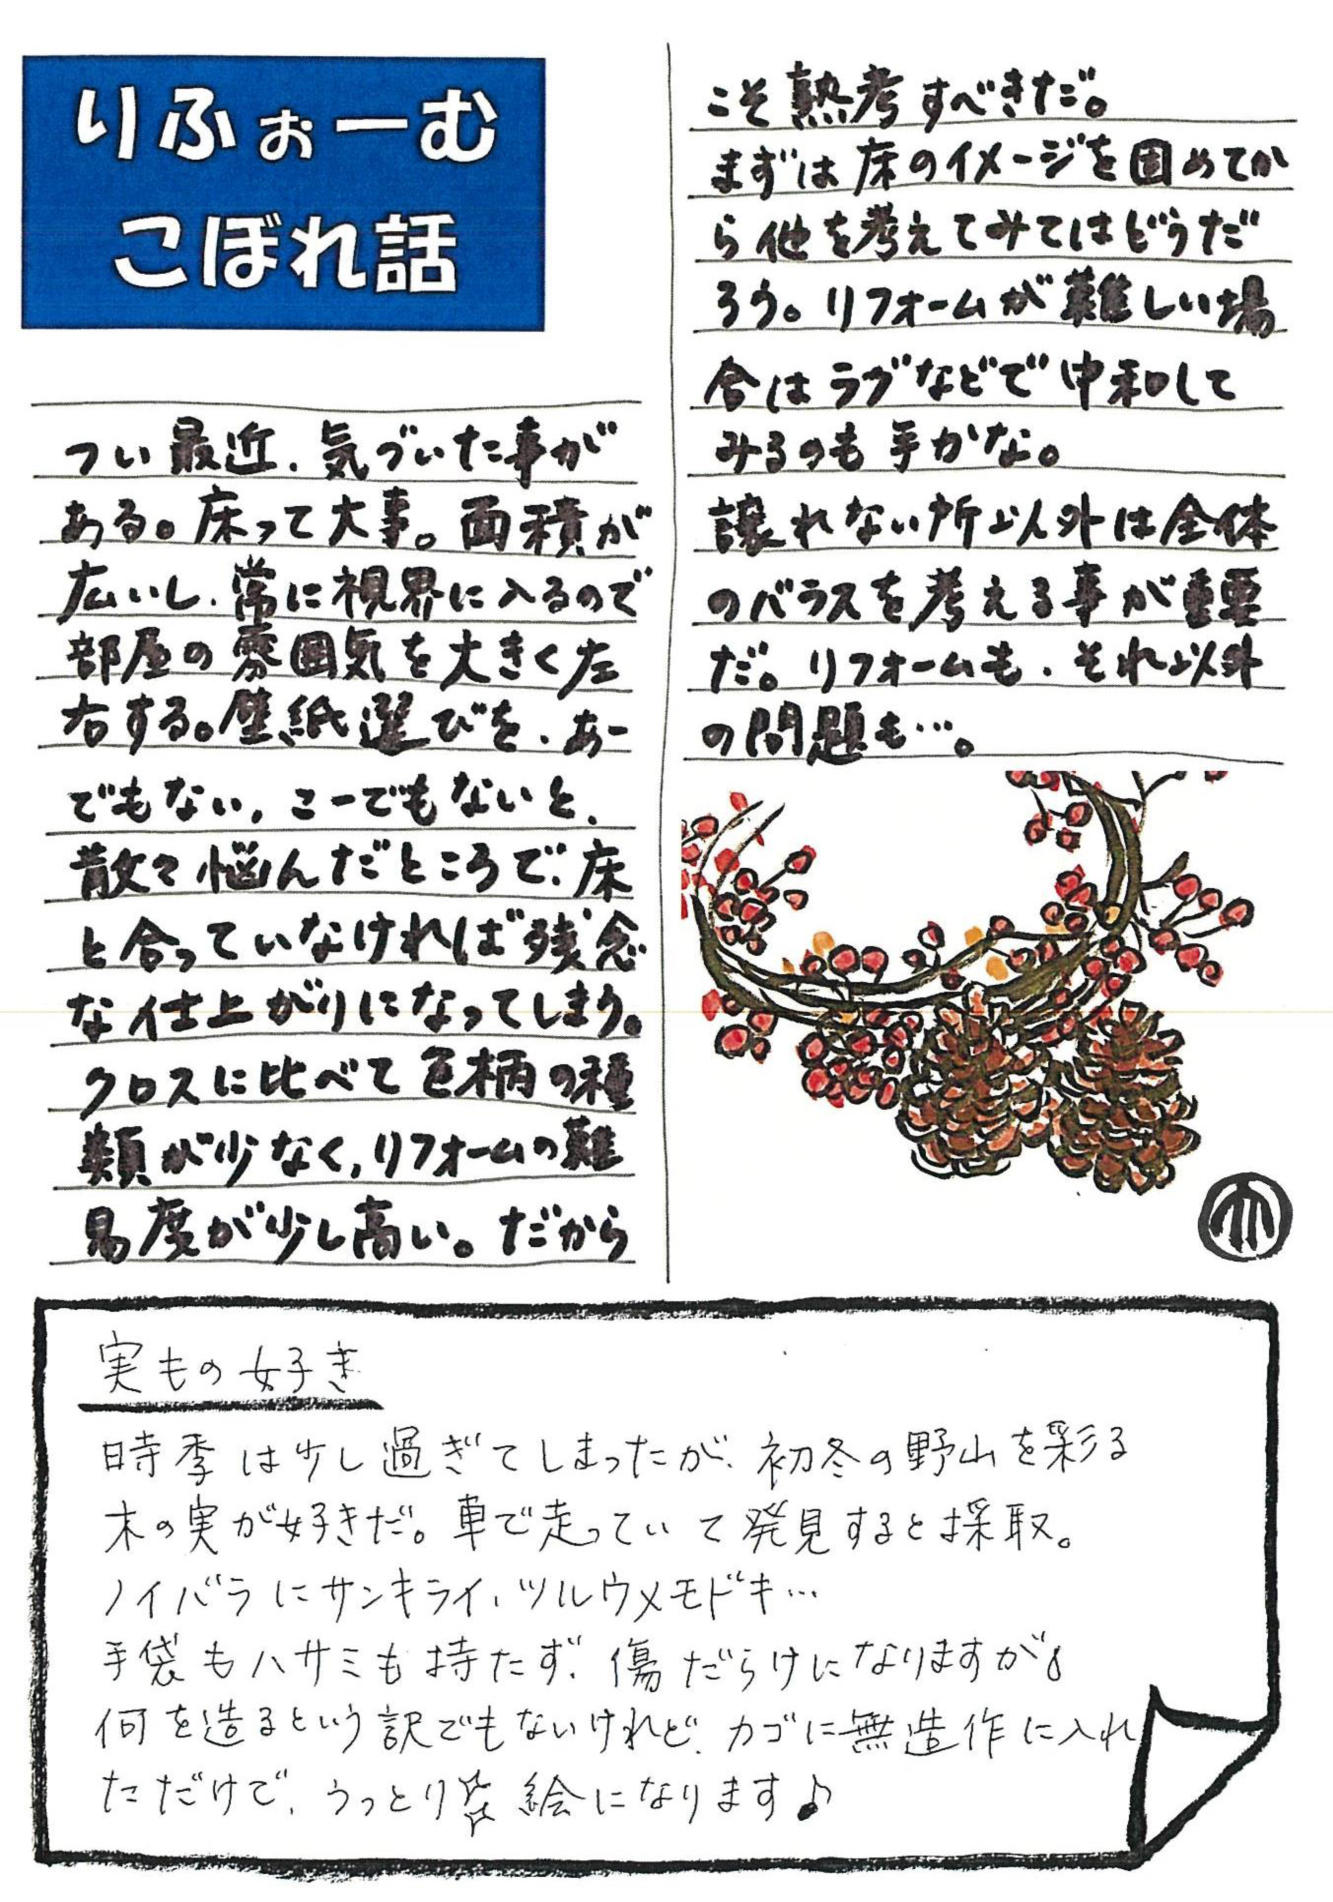 りふぉーむ
こぼれ話
つい最近、気づいた事が
ある。床って大事。面積が
広いし、常に視界に入るので
部屋の雰囲気を大きく左
右する。壁紙選びを、あー
でもない、こーでもないと、
散々悩んだところで、床
と合っていなければ残念
な仕上がりになってしまう。
クロスに比べて色柄の種
類が少なく、リフォームの難
易度が少し高い。だから
こそ熟考すべきだ。
まずは床のイメージを固めてか
ら他を考えてみてはどうだ
ろう。リフォームが難しい場
合はラグなどで中和して
みるのも手かな。
譲れない所以外は全体
のバラスを考える事が重要
だ。リフォームも、それ以外
の問題も…。
実もの好き
時季は少し過ぎてしまったが、初冬の野山を彩る
木の実が好きだ。車で走っていて発見すると採取。
ノイバラにサンキライ、ツルウメモドキ…
手袋もハサミも持たず、傷だらけになりますが
何を造るという訳でもないけれど、カゴに無造作に入れ
ただけで、うっとり 絵になります♪